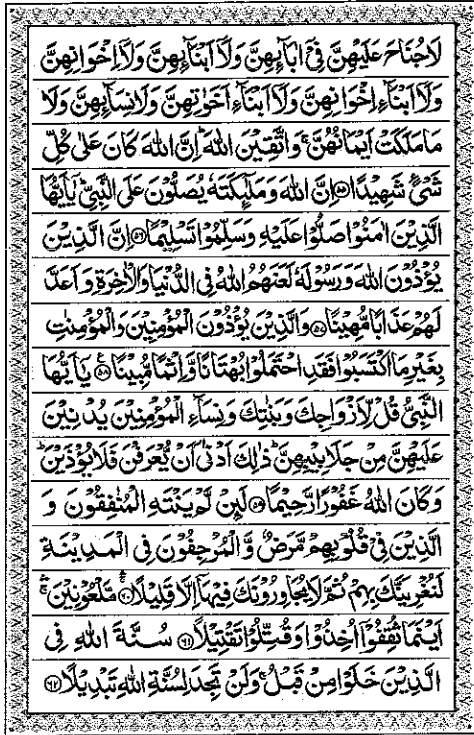 لَاجُنَاحَ عَلَيْهِنَّ فِيْٓ اٰبَآئِهِنَّ وَلَآ اَبْنَآئِهِنَّ وَلَآ اِخْوَانِهِنَّ
وَلَآ اَبْنَآءِ اِخْوَانِهِنَّ وَلَآ اَبْنَآءِ اَخَوٰتِهِنَّ وَلَانِسَآئِهِنَّ وَلَا
مَا مَلَكَتْ اَيْمَانُهُنَّ ۚ وَاتَّقِيْنَ اللهَ ؕ اِنَّ اللهَ كَانَ عَلٰى كُلِّ
شَيْءٍ شَهِيْدًا ﴿۵۵﴾ اِنَّ اللهَ وَمَلٰٓئِكَتَهٗ يُصَلُّوْنَ عَلَى النَّبِيِّ ؕ يٰٓاَيُّهَا
الَّذِيْنَ اٰمَنُوْا صَلُّوْا عَلَيْهِ وَسَلِّمُوْا تَسْلِيْمًا ﴿۵۶﴾ اِنَّ الَّذِيْنَ
يُؤْذُوْنَ اللهَ وَرَسُوْلَهٗ لَعَنَهُمُ اللهُ فِي الدُّنْيَا وَالْاٰخِرَةِ وَاَعَدَّ
لَهُمْ عَذَابًا مُّهِيْنًا ﴿۵۷﴾ وَالَّذِيْنَ يُؤْذُوْنَ الْمُؤْمِنِيْنَ وَالْمُؤْمِنٰتِ
بِغَيْرِ مَا اكْتَسَبُوْا فَقَدِ احْتَمَلُوْا بُهْتَانًا وَّاِثْمًا مُّبِيْنًا ﴿۵۸﴾ يٰٓاَيُّهَا
النَّبِيُّ قُلْ لِّاَزْوَاجِكَ وَبَنٰتِكَ وَنِسَآءِ الْمُؤْمِنِيْنَ يُدْنِيْنَ
عَلَيْهِنَّ مِنْ جَلَابِيْبِهِنَّ ؕ ذٰلِكَ اَدْنٰٓى اَنْ يُّعْرَفْنَ فَلَا يُؤْذَيْنَ ؕ
وَكَانَ اللهُ غَفُوْرًا رَّحِيْمًا ﴿۵۹﴾ لَئِنْ لَّمْ يَنْتَهِ الْمُنٰفِقُوْنَ وَ
الَّذِيْنَ فِيْ قُلُوْبِهِمْ مَّرَضٌ وَّالْمُرْجِفُوْنَ فِي الْمَدِيْنَةِ
لَنُغْرِيَنَّكَ بِهِمْ ثُمَّ لَا يُجَاوِرُوْنَكَ فِيْهَآ اِلَّا قَلِيْلًا ﴿۶۰﴾ مَّلْعُوْنِيْنَ ۚ
اَيْنَمَا ثُقِفُوْٓا اُخِذُوْا وَقُتِّلُوْا تَقْتِيْلًا ﴿۶۱﴾ سُنَّةَ اللهِ فِي
الَّذِيْنَ خَلَوْا مِنْ قَبْلُ ۚ وَلَنْ تَجِدَ لِسُنَّةِ اللهِ تَبْدِيْلًا ﴿۶۲﴾